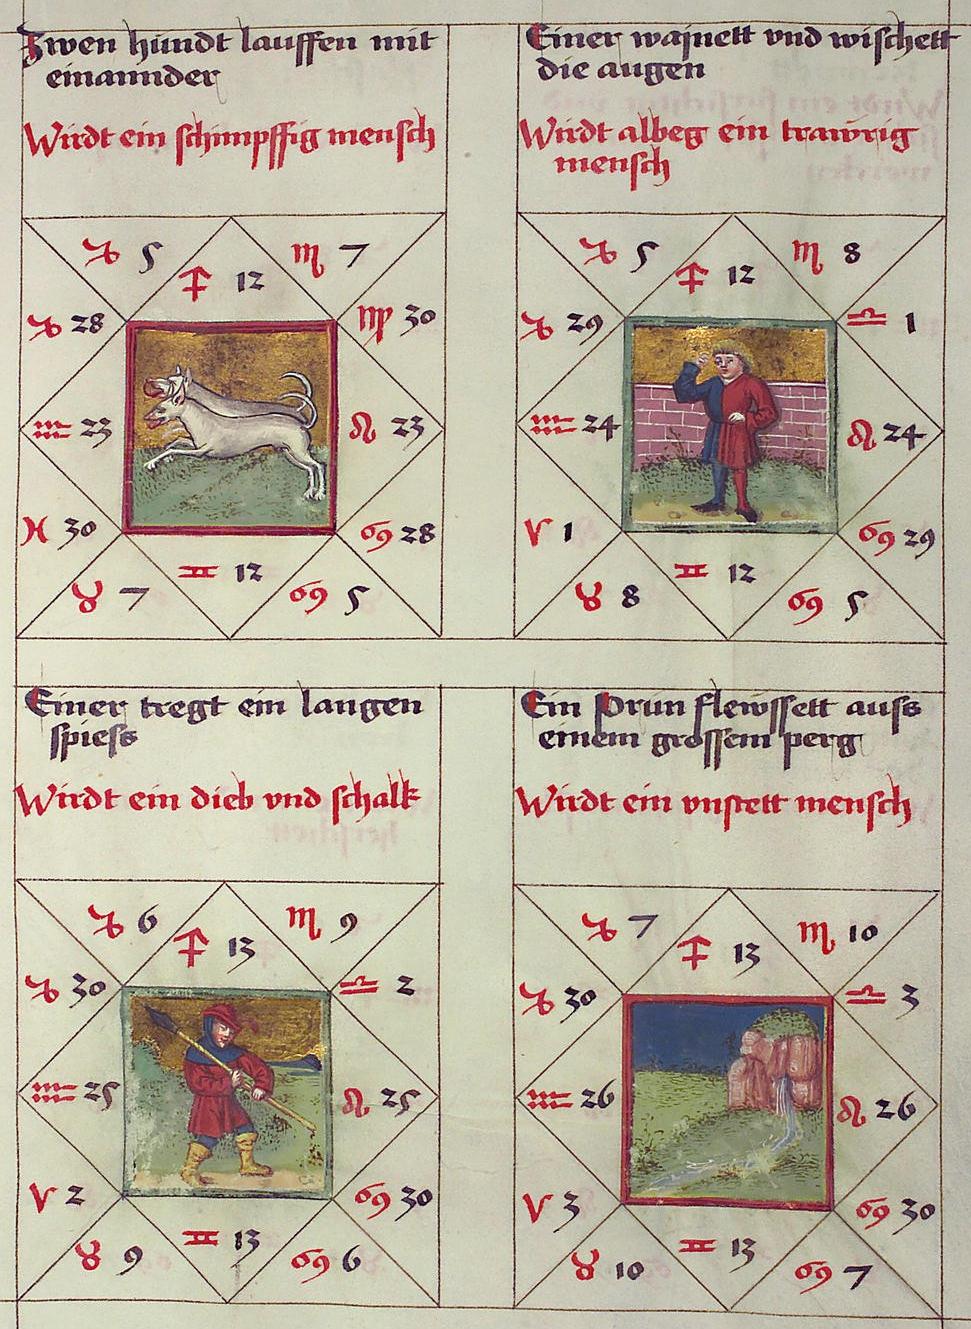 Zwen hundt lauffen mit
einannder
Wirdt ein schimpffig mensch
♑ 5
♐ 12
♏ 7
♑ 28
♍ 30
♒ 23
♌ 23
♓ 30
♋ 28
♉ 7
♊ 12
♋ 5
Einer wajnett vnd wischett
die augen
Wirdt albeg ein trawrig
mensch
♑ 5
♐ 12
♏ 8
♑ 29
♎ 1
♒ 24
♌ 24
♈ 1
♋ 29
♉ 8
♊ 12
♋ 5
Einer tregt ein langen
spiess
Wirdt ein dieb vnd schalk
♑ 6
♐ 13
♏ 9
♑ 30
♎ 2
♒ 25
♌ 25
♈ 2
♋ 30
♉ 9
♊ 13
♋ 6
Ein Prun flewssett auss
einem grossem perg
Wirdt ein vnstett mensch
♑ 7
♐ 13
♏ 10
♑ 30
♎ 3
♒ 26
♌ 26
♈ 3
♋ 30
♉ 10
♊ 13
♋ 7